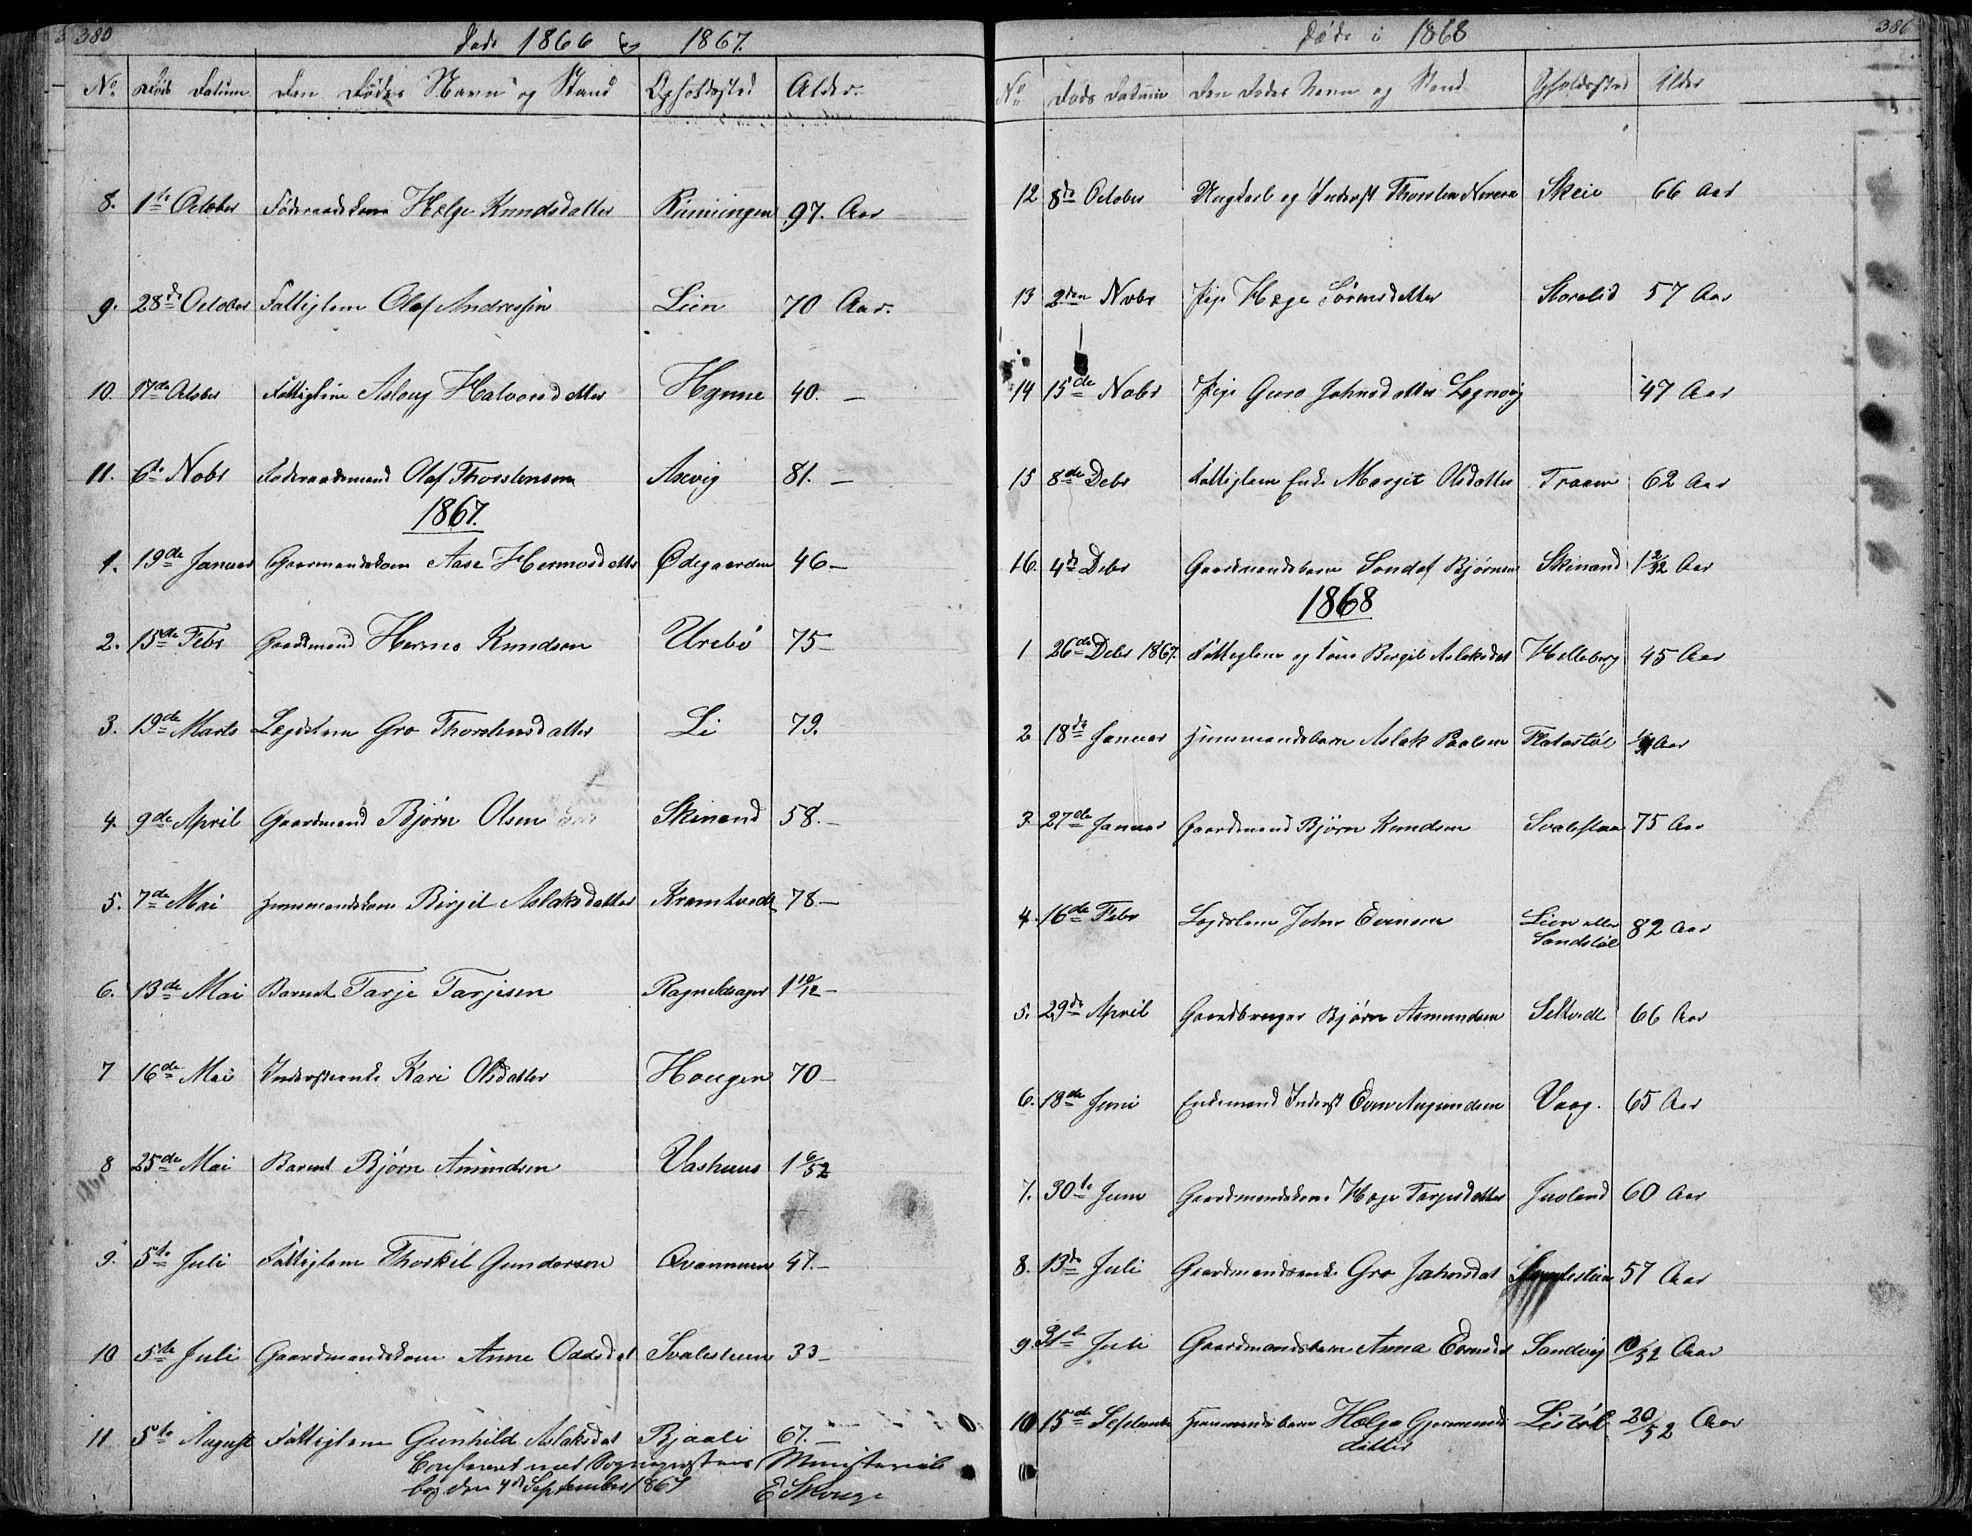 380
Døde 1866 & 1867.
No. Døds Datum Den Dødes Navn og Stand Opholdssted Alder.
8. 1ste October Føderaadskone Hælge Knudsdatter Rünningen 97. Aar
9. 28de October Fattiglem Olaf Andressøn Lien 70 Aar.
10. 17de October Fattiglem Aslaug Halvorsdatter Hynne 40. —
11. 6te Nobr Føderaadsmand Olaf Thorstensen Asevig 81. —
1867.
1. 19de Januar Gaarmandskone Aase Hermosdatter Ødegaarden 46 —
2. 15de Febr Gaardmand Hermo Knudsen Urebö 75 —
3. 19de Marts Lægdslem Gro Thorstensdatter Li 79.
4. 9de April Gaardmand Bjørn Olsen Skinand 58. —
5. 7de Mai Huusmandskone Birgit Aslaksdatter Kromtvedt 78 —
6. 13de Mai Barnet Tarje Tarjesen Ragnildsager 1 10/12 —
7 16de Mai Inderstenke Kari Olsdatter Hougen 70 —
8 25de Mai Barnet Bjørn Amundsen Vashuus 1 6/52
9. 5te Juli Fattiglem Thorkil Gunderson Qvannum 47. —
10 5te Juli Gaardmandskone Anne Oddsdat Svalestuen 33 —
11 5te August Fattiglem Gunhild Aslaksdat Bjaali 67. —
Confereret med Sognepræstens Ministerial
bog den 4de September 1867 E Skouge
386
Døde i 1868
No Døds Datum Den Dødes Navn og Stand Opholdssted Alder
12 8de October Ungkarl og Inderst Thorsten Skeie 66 Aar
13 2den Nobr Pige Hæge Sørensdatter Storelid 57 Aar
14 15de Nobr Pige Guro Johnsdatter Lognvig 47 Aar
15 8de Debr Fattiglem Enke Margit Olsdatter Traaen 62 Aar
16. 4de Debr Gaardmandsbarn Sondof Bjørnsen Skinand 1 2/52 Aar
1868
1 26de Debr 1867. Fattiglem og Kone Bergit Aslaksdat Helleberg 45 Aar
2 18de Januar Huusmandsbarn Aslak Paalsen Flatastøl Aar
3 27de Januar Gaardmand Bjørn Knudsen Svalestuen 75 Aar
4. 16de Febr Legdslem John Evensen Lien eller Sandstøl 82 Aar
5. 29de April Gaardbruger Bjørn Asmundsen Seltvedt 66 Aar
6. 18de Juni Enkemand Inderst Even Aasmundsen Vaag. 65 Aar
7. 30te Juni Gaardmandskone Hæge Tarjesdatter Juvland 60 Aar
8. 13de Juli Gaardmandsenke Gro Johnsdat Svalestuen 57 Aar
9. 31te Juli Gaardmandsbarn Anna Evensdat Sandvig 10/52 Aar
10 15de September Huusmandsbarn Hælga Gjermunds
datter Listøl 20/52 Aar